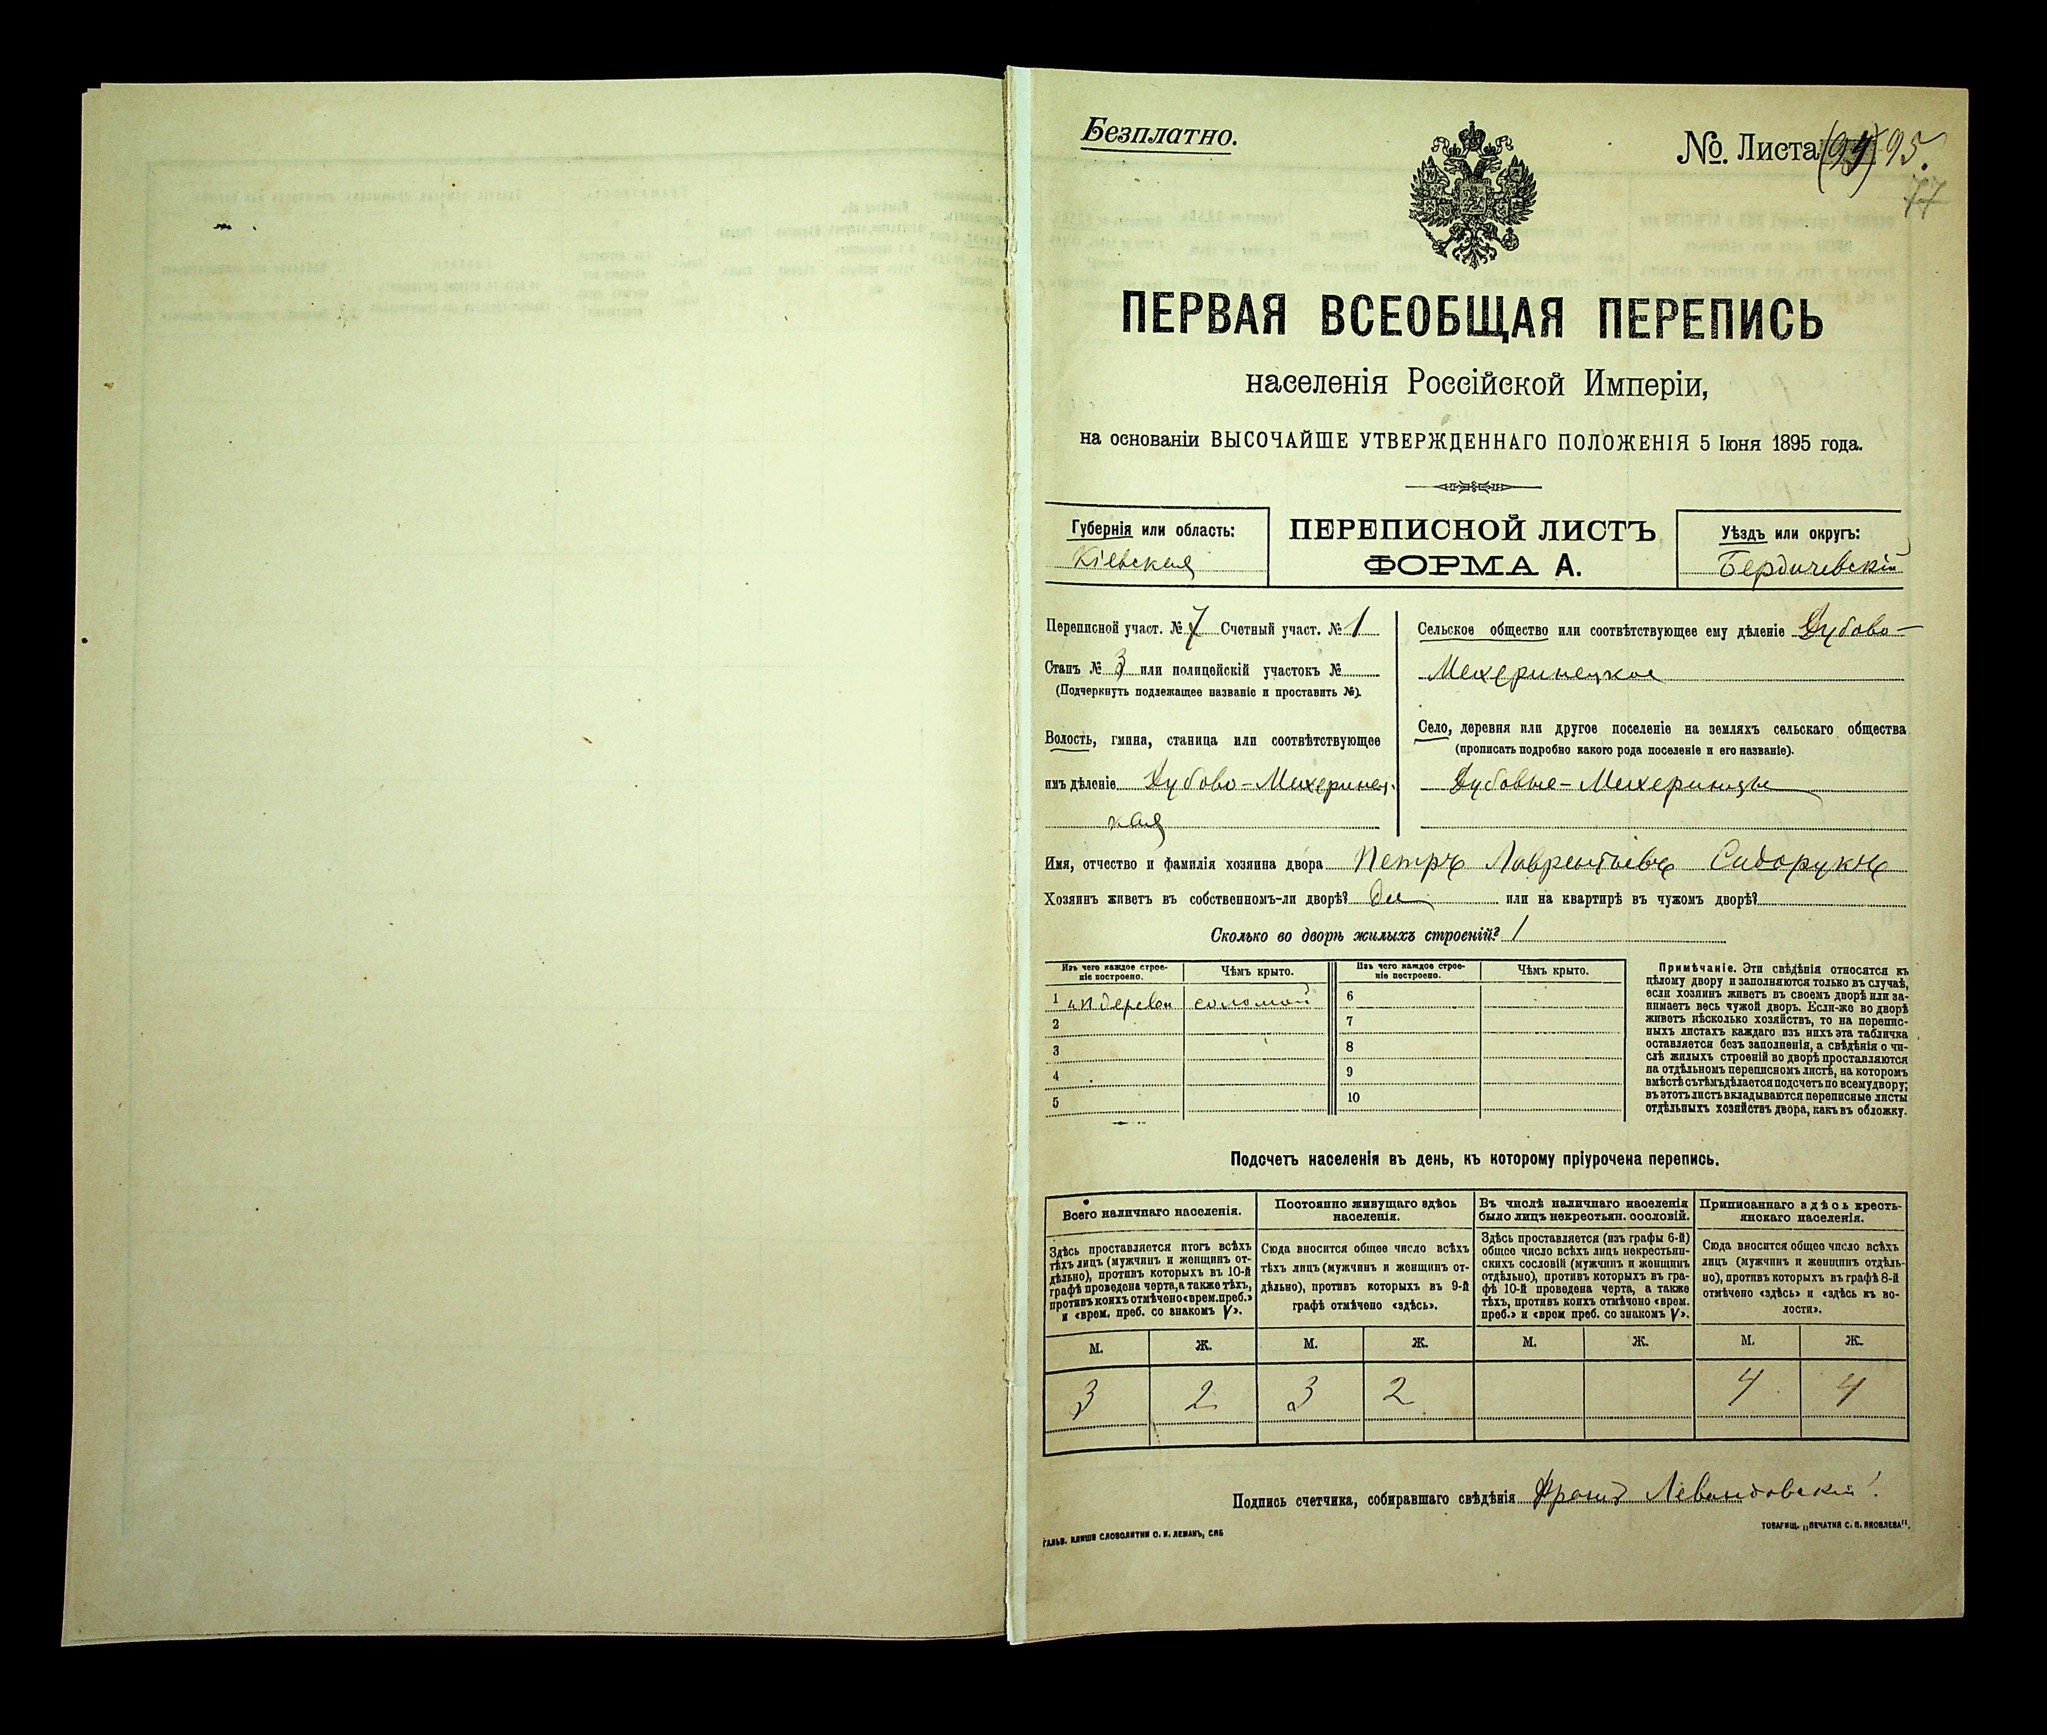 Безплатно.
№. Листа (94) 95.
77
ПЕРВАЯ ВСЕОБЩАЯ ПЕРЕПИСЬ
населенія Россійской Имперіи,
на основаніи ВЫСОЧАЙШЕ УТВЕРЖДЕННАГО ПОЛОЖЕНІЯ 5 Іюня 1895 года.
Губернія или область:
Кіевская
ПЕРЕПИСНОЙ ЛИСТЪ
ФОРМА А.
Уѣздъ или округъ:
Бердичевскій
Переписной участ. № 7 Счетный участ. № 1
Станъ № 3 или полицейскій участокъ №
(Подчеркнуть подлежащее названіе и проставить №).
Волость, гмина, станица или соотвѣтствующее
имъ дѣленіе Дубово-Мехеринец-
кая
Сельское общество или соотвѣтствующее ему дѣленіе Дубово-
Мехеринецкое
Село, деревня или другое поселеніе на земляхъ сельскаго общества
(прописать подробно какого рода поселеніе и его названіе).
Дубовые-Мехеринцы
Имя, отчество и фамилія хозяина двора Петръ Лаврентьевъ Сидорукъ
Хозяинъ живетъ въ собственномъ-ли дворѣ? Да или на квартирѣ въ чужомъ дворѣ?
Сколько во дворѣ жилыхъ строеній? 1
Изъ чего каждое строе-
ніе построено.
Чѣмъ крыто.
Изъ чего каждое строе-
ніе построено.
Чѣмъ крыто.
1 изъ дерева соломой
2
3
4
5
6
7
8
9
10
Примѣчаніе. Эти свѣдѣнія относятся къ
цѣлому двору и заполняются только въ случаѣ,
если хозяинъ живетъ въ своемъ дворѣ или за-
нимаетъ весь чужой дворъ. Если-же во дворѣ
живетъ нѣсколько хозяйствъ, то на перепис-
ныхъ листахъ каждаго изъ нихъ эта табличка
оставляется безъ заполненія, а свѣдѣнія о чи-
слѣ жилыхъ строеній во дворѣ проставляются
на отдѣльномъ переписномъ листѣ, на которомъ
вмѣстѣ съ тѣмъ дѣлается подсчетъ по всему двору;
въ этотъ листъ вкладываются переписные листы
отдѣльныхъ хозяйствъ двора, какъ въ обложку.
Подсчетъ населенія въ день, къ которому пріурочена перепись.
Всего наличнаго населенія.
Здѣсь проставляется итогъ всѣхъ
тѣхъ лицъ (мужчинъ и женщинъ от-
дѣльно), противъ которыхъ въ 10-й
графѣ проведена черта, а также тѣхъ,
противъ коихъ отмѣчено «врем. преб.»
и «врем. преб. со знакомъ V».
Постоянно живущаго здѣсь
населенія.
Сюда вносится общее число всѣхъ
тѣхъ лицъ (мужчинъ и женщинъ от-
дѣльно), противъ которыхъ въ 9-й
графѣ отмѣчено «здѣсь».
Въ числѣ наличнаго населенія
было лицъ некрестьян. сословій.
Здѣсь проставляется (изъ графы 6-й)
общее число всѣхъ лицъ некрестьян-
скихъ сословій (мужчинъ и женщинъ
отдѣльно), противъ которыхъ въ гра-
фѣ 10-й проведена черта, а также
тѣхъ, противъ коихъ отмѣчено «врем.
преб.» и «врем преб. со знакомъ V».
Приписаннаго здѣсь кресть-
янскаго населенія.
Сюда вносится общее число всѣхъ
лицъ (мужчинъ и женщинъ отдѣль-
но), противъ которыхъ въ графѣ 8-й
отмѣчено «здѣсь» и «здѣсь къ во-
лости».
М. Ж. М. Ж. М. Ж. М. Ж.
3 2 3 2 4 4
Подпись счетчика, собиравшаго свѣдѣнія Левандовскій
ГАЛЬВ. КЛИШЕ СЛОВОЛИТНИ О. И. ЛЕМАНЪ, СПБ
ТОВАРИЩ. „ПЕЧАТНЯ С. П. ЯКОВЛЕВА".